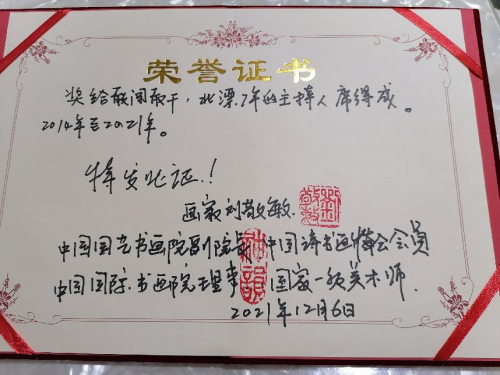 荣誉证书
奖给敢闯敢干，北漂7年的主持人席得成。
2014年至2021年。
特发此证！
画家刘敬敏
中国国艺书画院副院长 中国诗书画 会会员
中国国际书画院理事 国家一级美术师
2021年12月6日